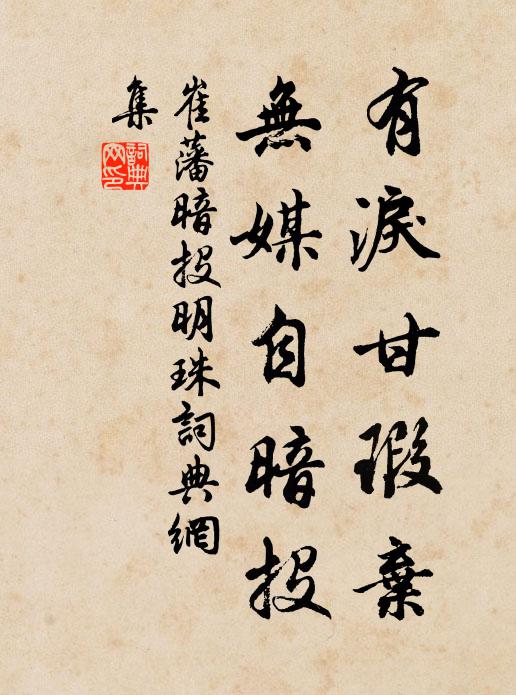 有淚甘瑕棄
無媒自暗投
崔藩暗投明珠詞典網
集
詞典
网印